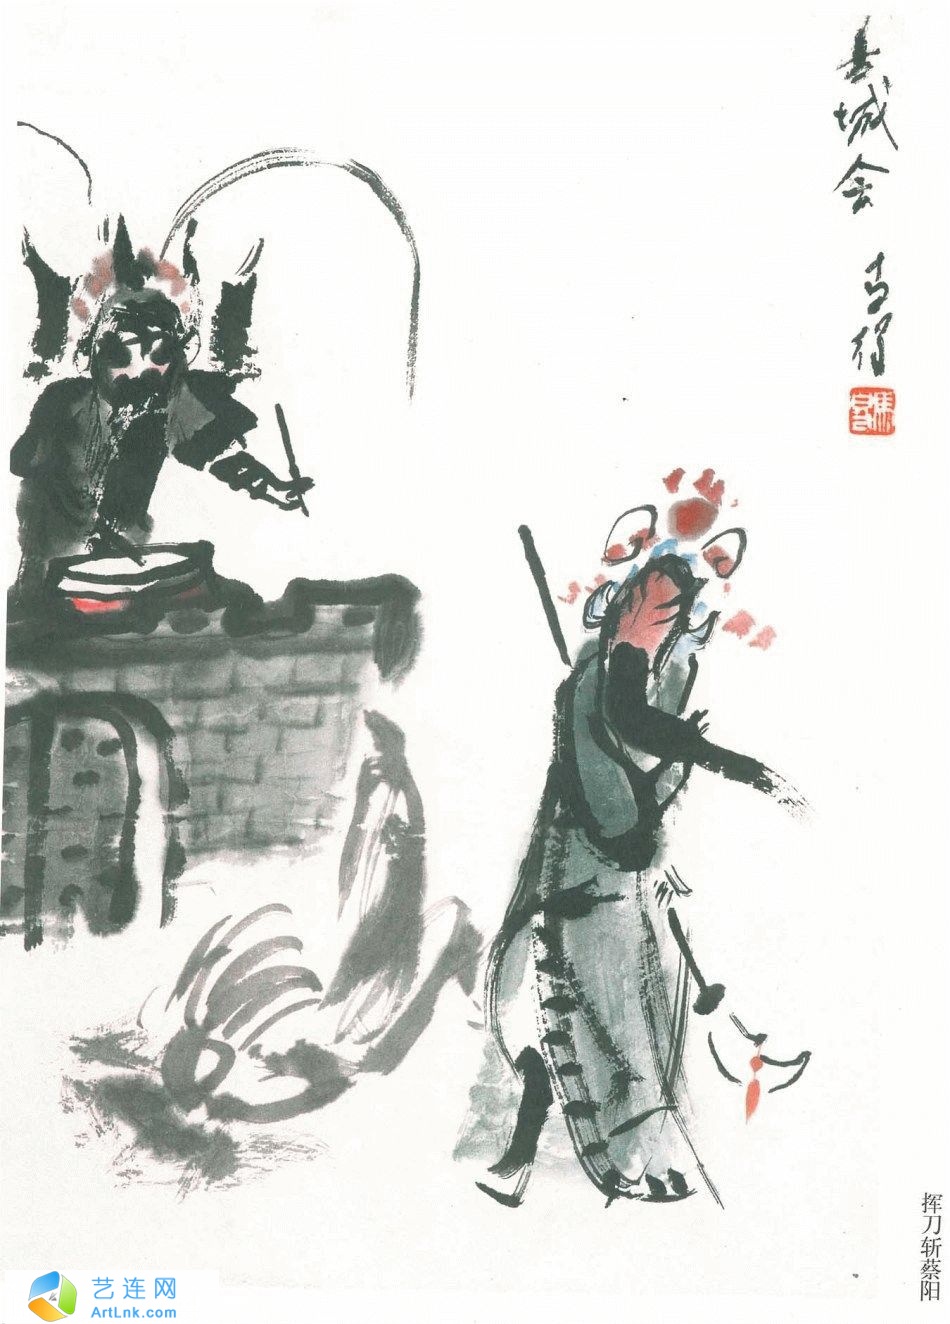 古城会
马得
挥刀斩蔡阳
艺连网
ArtLnk.com